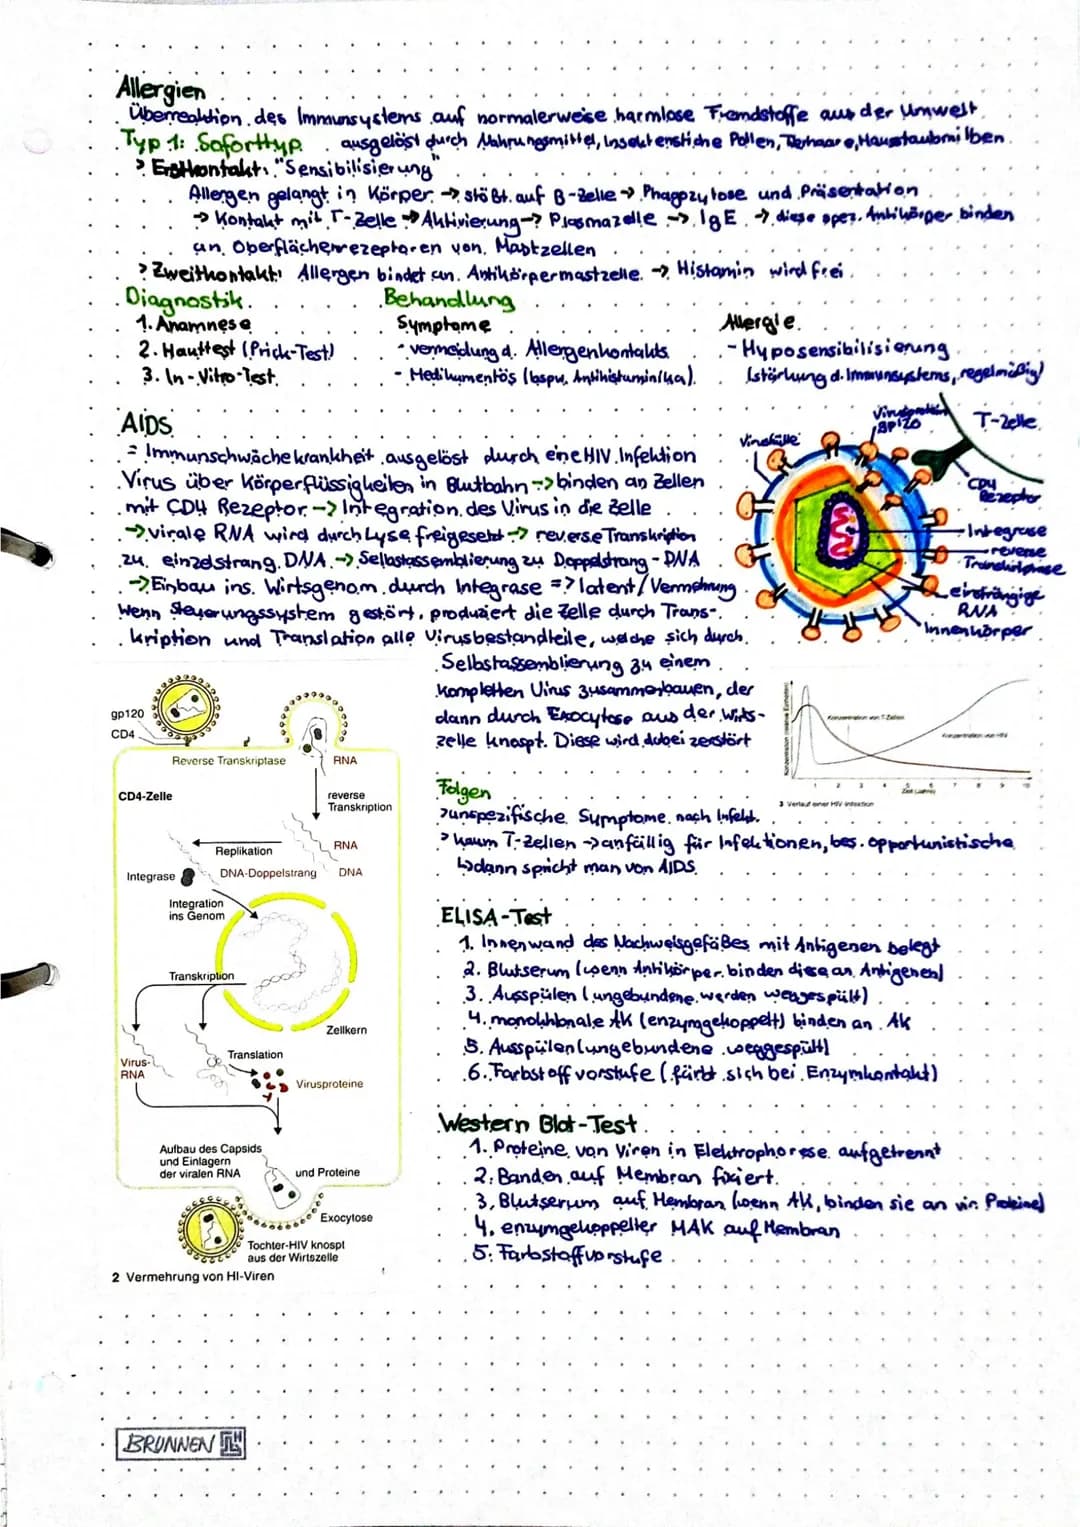 Allergien
Überreaktion des Immunsystems auf normalerweise harmlose Fremdstoffe aus der Umwelt
Typ 1: Soforttyp ausgelöst durch Nahrungsmittel, Insektenstiche Pollen, Tierhaare, Hausstaubmilben
> Erstkontakt: "Sensibilisierung"
Allergen gelangt in Körper -> stößt auf B-Zelle -> Phagozytose und Präsentation
-> Kontakt mit T-Zelle -> Aktivierung -> Plasmazelle -> IgE -> diese spez. Antikörper binden
an Oberflächenrezeptoren von Mastzellen
> Zweitkontakt: Allergen bindet an Antikörpermastzelle -> Histamin wird frei
Diagnostik
1. Anamnese
2. Hauttest (Prick-Test)
3. In-Vitro-Test
Behandlung
Symptome
- vermeidung d. Allergenkontakts
- Medikamentös (bspw. Antihistaminika)
Allergie
- Hyposensibilisierung
(stärkung d. Immunsystems, regelmäßig)
AIDS
= Immunschwächekrankheit ausgelöst durch eine HIV Infektion
Virus über Körperflüssigkeiten in Blutbahn -> binden an Zellen
mit CD4 Rezeptor -> Integration des Virus in die Zelle
-> virale RNA wird durch Lyse freigesetzt -> reverse Transkription
zu einzelstrang DNA -> Selbstassemblierung zu Doppelstrang-DNA
-> Einbau ins Wirtsgenom durch Integrase => latent/Vermehrung
Wenn Steuerungssystem gestört, produziert die Zelle durch Trans-
kription und Translation alle Virusbestandteile, welche sich durch
Selbstassemblierung zu einem
kompletten Virus zusammenbauen, der
dann durch Exocytose aus der Wirts-
zelle knospt. Diese wird dabei zerstört
Virushülle
Virusprotein
gp120
T-Zelle
CD4
Rezeptor
Integrase
reverse
Transkriptase
einsträngige
RNA
Innenkörper
gp120
CD4
Reverse Transkriptase
RNA
CD4-Zelle
reverse
Transkription
RNA
Replikation
Integrase
DNA-Doppelstrang
DNA
Integration
ins Genom
Transkription
Zellkern
Virus-
RNA
Translation
Virusproteine
Aufbau des Capsids
und Einlagern
der viralen RNA
und Proteine
Exocytose
Tochter-HIV knospt
aus der Wirtszelle
2 Vermehrung von HI-Viren
Konzentration (relative Einheiten)
Konzentration von T-Zellen
Konzentration von HIV
1 2 3 4 5 6 7 8 9 10
Zeit (Jahre)
3 Verlauf einer HIV-Infektion
Folgen
> unspezifische Symptome nach Infekt.
> kaum T-Zellen -> anfällig für Infektionen, bes. opportunistische
↳ dann spricht man von AIDS
ELISA-Test
1. Innenwand des Nachweisgefäßes mit Antigenen belegt
2. Blutserum (wenn Antikörper binden diese an Antigenen)
3. Ausspülen (ungebundene werden weggespült)
4. monoklonale AK (enzymgekoppelt) binden an AK
5. Ausspülen (ungebundene weggespült)
6. Farbstoffvorstufe (färbt sich bei Enzymkontakt)
Western Blot-Test
1. Proteine von Viren in Elektrophorese aufgetrennt
2. Banden auf Membran fixiert
3. Blutserum auf Membran (wenn AK, binden sie an vir. Proteine)
4. enzymgekoppelter MAK auf Membran
5. Farbstoffvorstufe
BRUNNEN